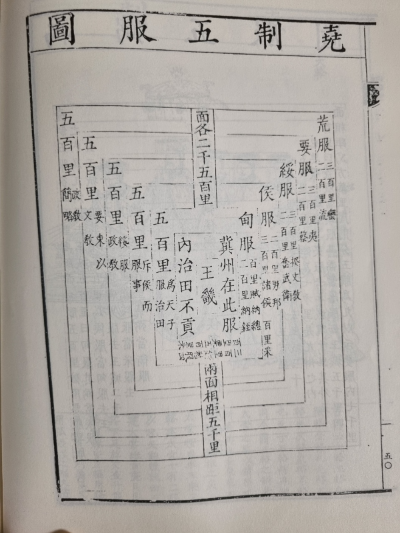 堯制五服圖
面各二千五百里
荒服
三百里蠻
二百里流
要服
三百里夷
二百里蔡
綏服
三百里揆文教
二百里奮武衛
侯服
百里采
二百里男邦
三百里諸侯
甸服
百里賦納總
二百里納銍
冀州在此服
王畿
內治田不貢
五百里
為天子
服治田
五百里
斥候而
服事
五百里
政教
五百里
要束以
文教
五百里
政教
簡略
兩面相距五千里
五〇